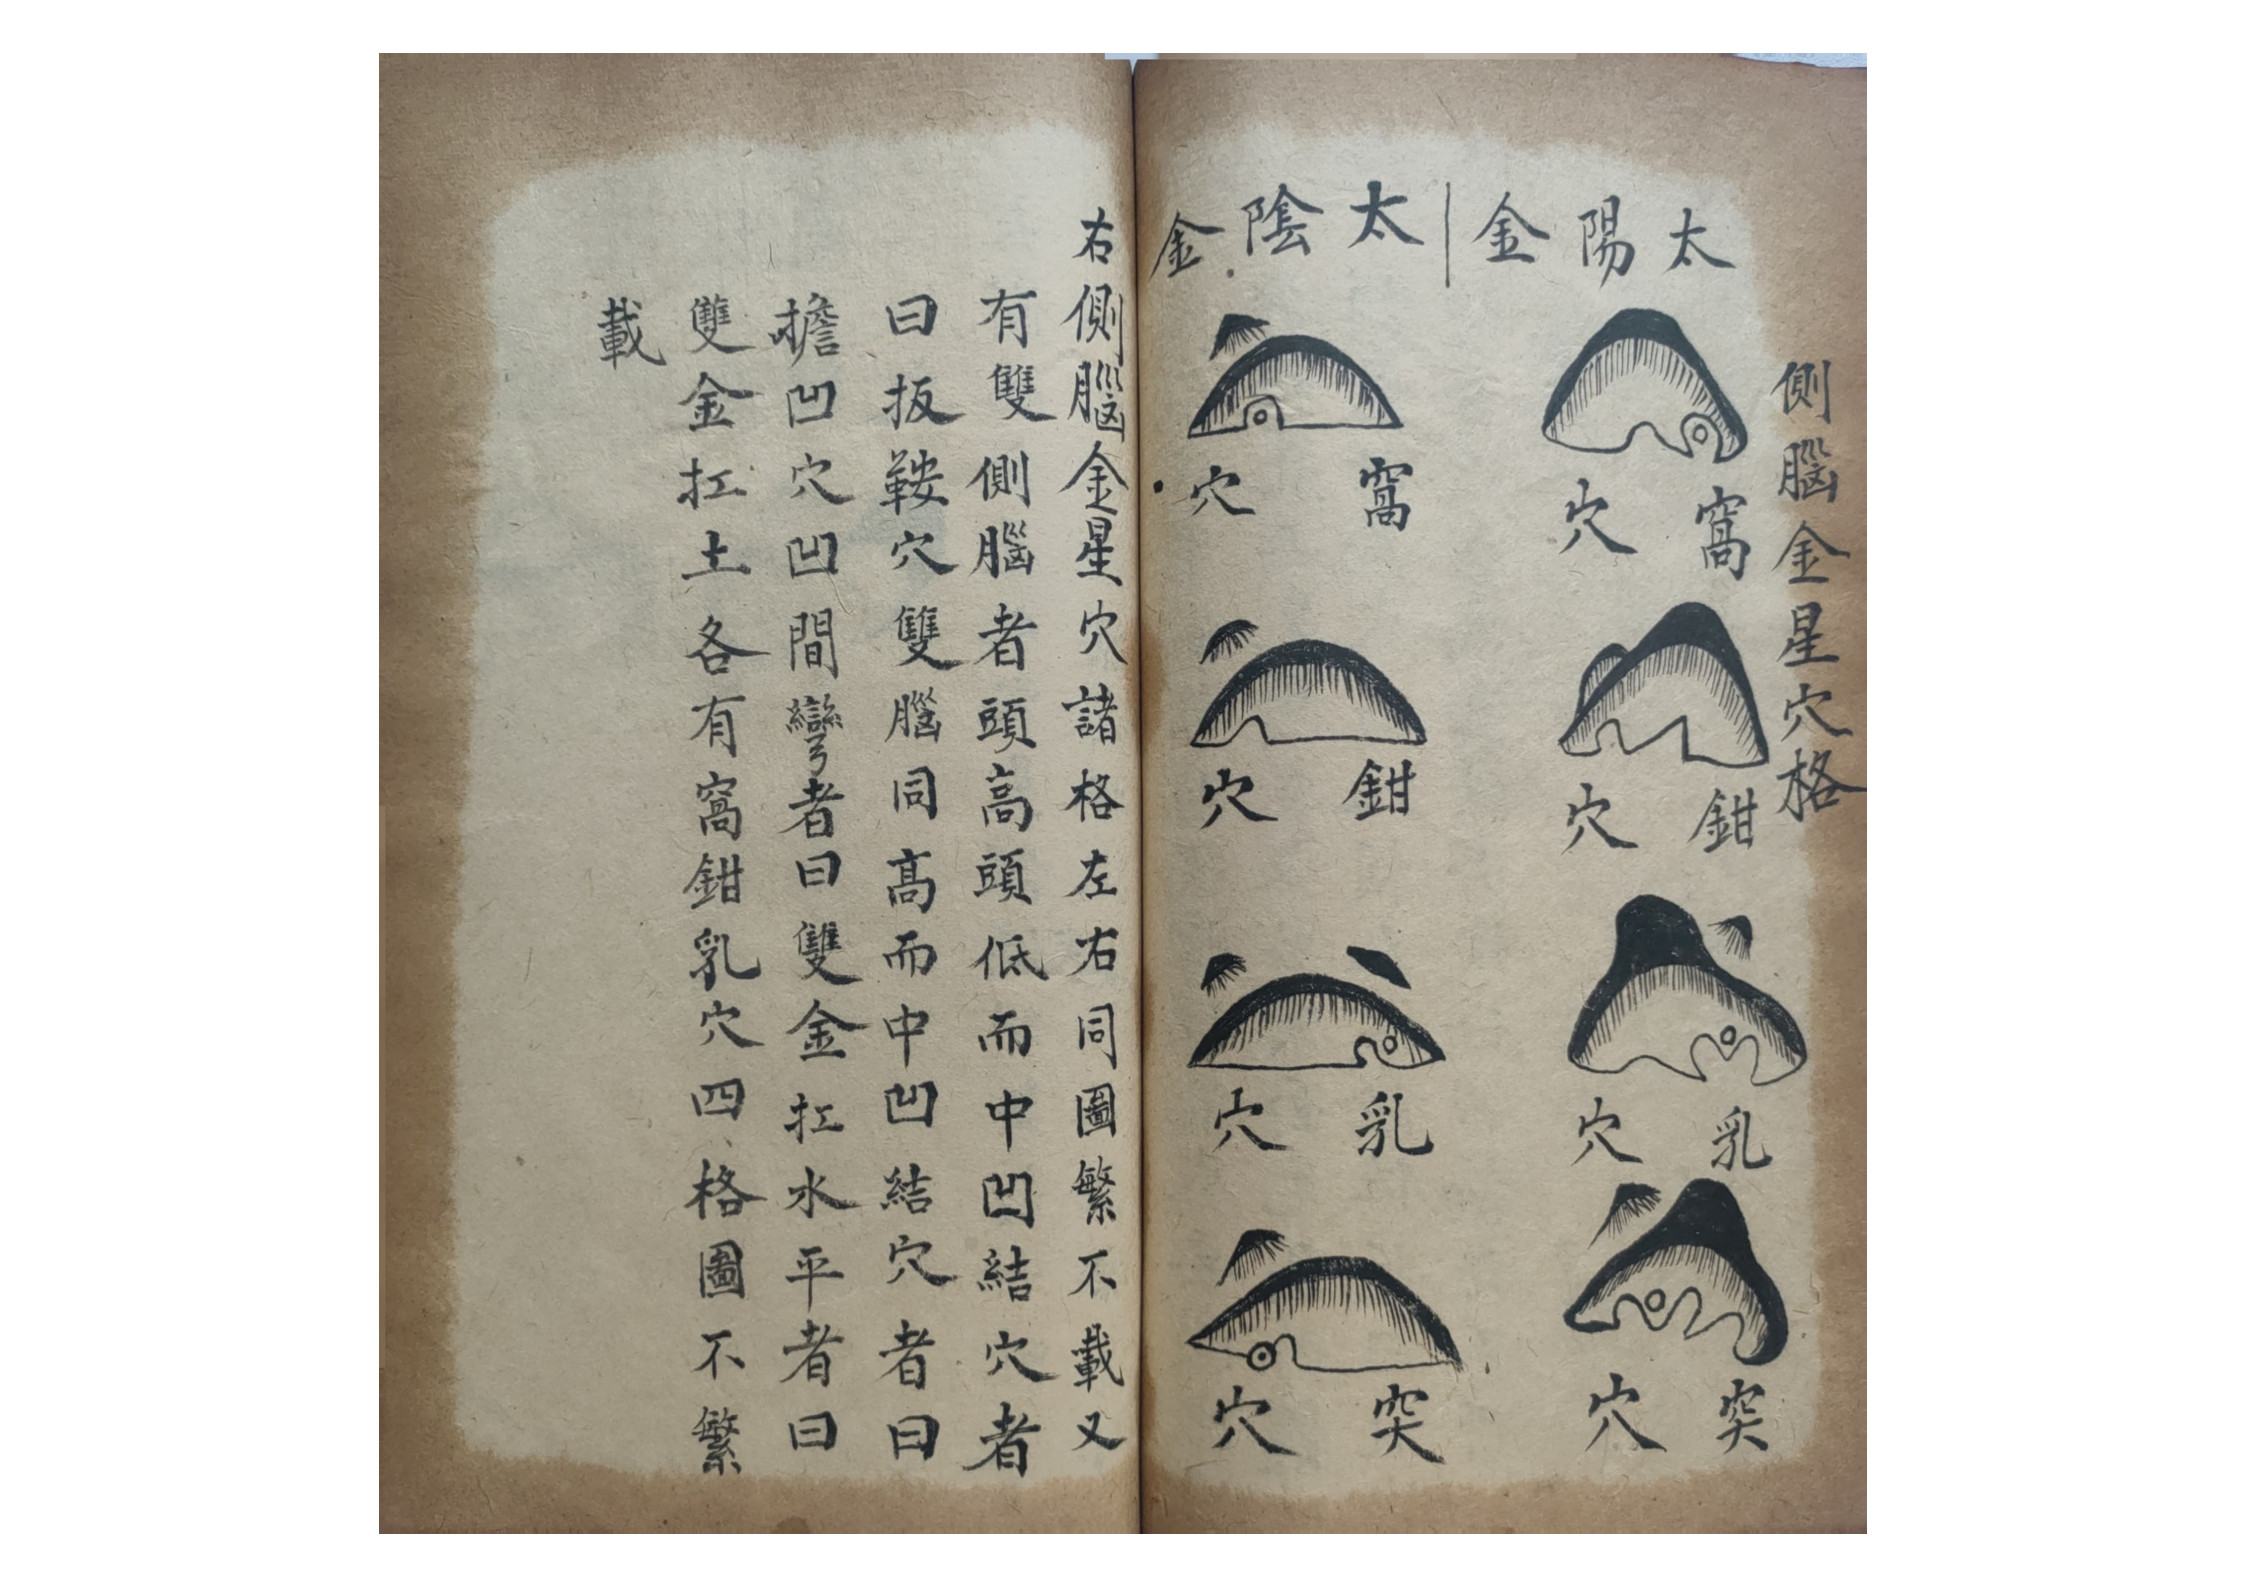 側腦金星穴格
太陽金
窩穴
鉗穴
乳穴
突穴
太陰金
窩穴
鉗穴
乳穴
突穴
右側腦金星穴諸格左右同圖繁不載又
有雙側腦者頭高頭低而中凹結穴者
曰扳鞍穴雙腦同高而中凹結穴者曰
擔凹穴凹間彎者曰雙金扛水平者曰
雙金扛土各有窩鉗乳穴四格圖不繁
載